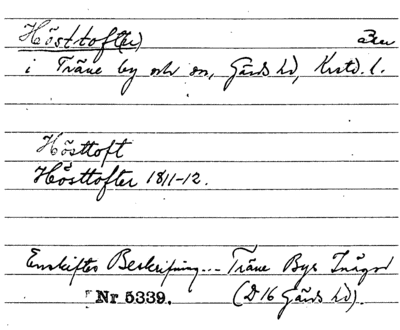 Hösttoft(er)
i Träne by och sn, Gärds hd, Krstd. l.
Hösttoft
Hösttofter 1811-12.
Enskiftes Beskrifning... Träne Bys Inägor
Nr 5339. (D 16 Gärds hd).